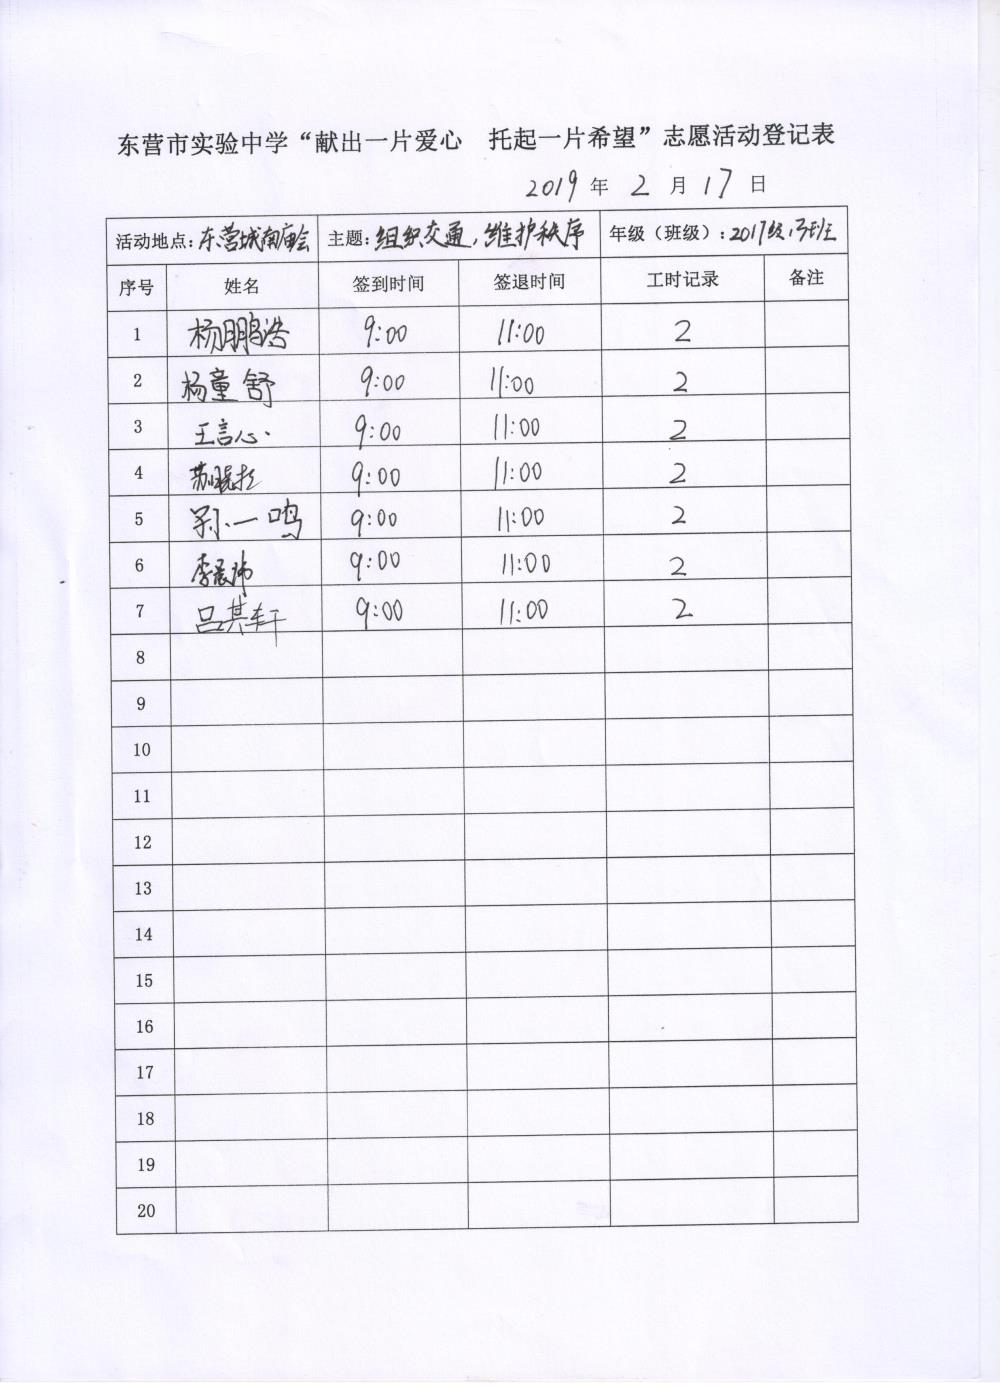 东营市实验中学“献出一片爱心 托起一片希望”志愿活动登记表
2019 年 2 月 17 日
活动地点：东营城南庙会 主题：组织交通，维护秩序 年级（班级）：2017级,3班
序号 姓名 签到时间 签退时间 工时记录 备注
1 杨鹏浩 9:00 11:00 2
2 杨童舒 9:00 11:00 2
3 王言心 9:00 11:00 2
4 9:00 11:00 2
5 孙一鸣 9:00 11:00 2
6 李晨炜 9:00 11:00 2
7 吕其轩 9:00 11:00 2
8
9
10
11
12
13
14
15
16
17
18
19
20